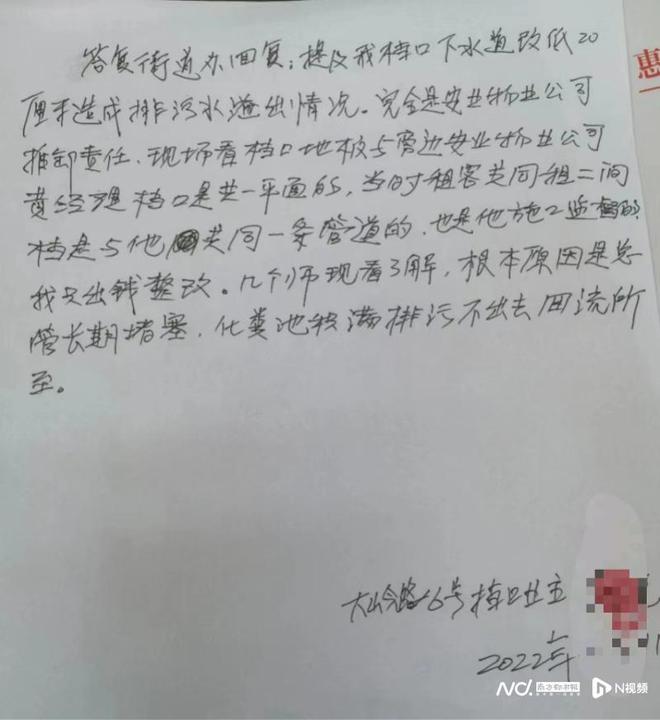 答复街道办回复：提及我档口下水道改低20
厘米造成排污水溢出情况。完全是安业物业公司
推卸责任、现场看档口地板与旁边安业物业公司
黄经理档口是共一平面的，当时租客共同租二间
档是与他共同一条管道的，也是他施工监督的
我只出钱整改。几个师现看了解，根本原因是总
管长期堵塞，化粪池积满排污不出去回流所
至。
大山路6号档口业主
2022年
惠
N视频